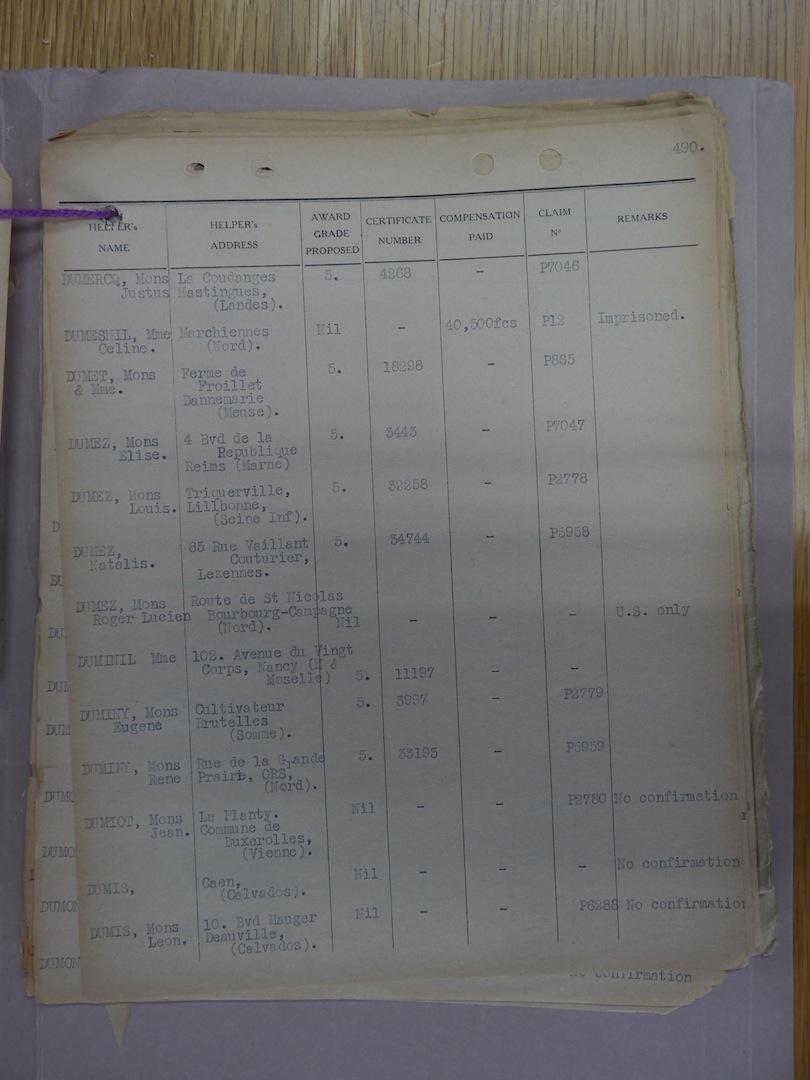 490.
HELPER's NAME HELPER's ADDRESS AWARD GRADE PROPOSED CERTIFICATE NUMBER COMPENSATION PAID CLAIM No REMARKS
DUMERCQ, Mons La Coudanges 5. 4268 - P7046
Justus Hastingues,
(Landes).
DUMESNIL, Mme Marchiennes Nil - 40,500fcs P12 Imprisoned.
Celine. (Nord).
DUMET, Mons Ferme de 5. 18298 - P865
& Mme. Froillet
Dannemarie
(Meuse).
DUMEZ, Mons 4 Bvd de la 5. 3443 - P7047
Elise. Republique
Reims (Marne)
DUMEZ, Mons Triquerville, 5. 32258 - P2778
Louis. Lillbonne,
(Seine Inf).
DUMEZ, 85 Rue Vaillant 5. 34744 - P5958
Natalis. Couturier,
Lezennes.
DUMEZ, Mons Route de St Nicolas
Roger Lucien Bourbourg-Campagne
(Nord). Nil - - - U.S. only
DUMINIL Mme 102. Avenue du Vingt
Corps, Nancy (M &
Moselle) 5. 11197 - -
DUMINY, Mons Cultivateur 5. 3997 - P2779
Eugene Brutelles
(Somme).
DUMINY, Mons Rue de la Grande 5. 33195 - P5959
Rene Prairi, ORS,
(Nord).
DUMIOT, Mons Le Planty. Nil - - P2780 No confirmation
Jean. Commune de
Buxerolles,
(Vienne).
DUMIS, Caen, Nil - - - No confirmation
(Calvados).
DUMIS, Mons 10. Bvd Mauger Nil - - P6288 No confirmation
Leon. Deauville,
(Calvados).
confirmation